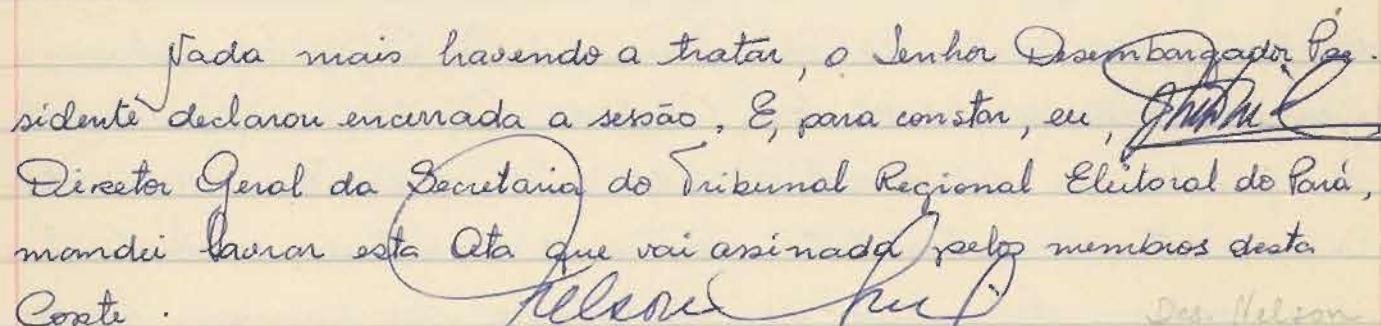 Nada mais havendo a tratar, o Senhor Desembargador Pre-
sidente declarou encerrada a sessão. E, para constar, eu,
Diretor Geral da Secretaria do Tribunal Regional Eleitoral do Pará,
mandei lavrar esta Ata que vai assinada pelos membros desta
Corte. Nelson
Des. Nelson